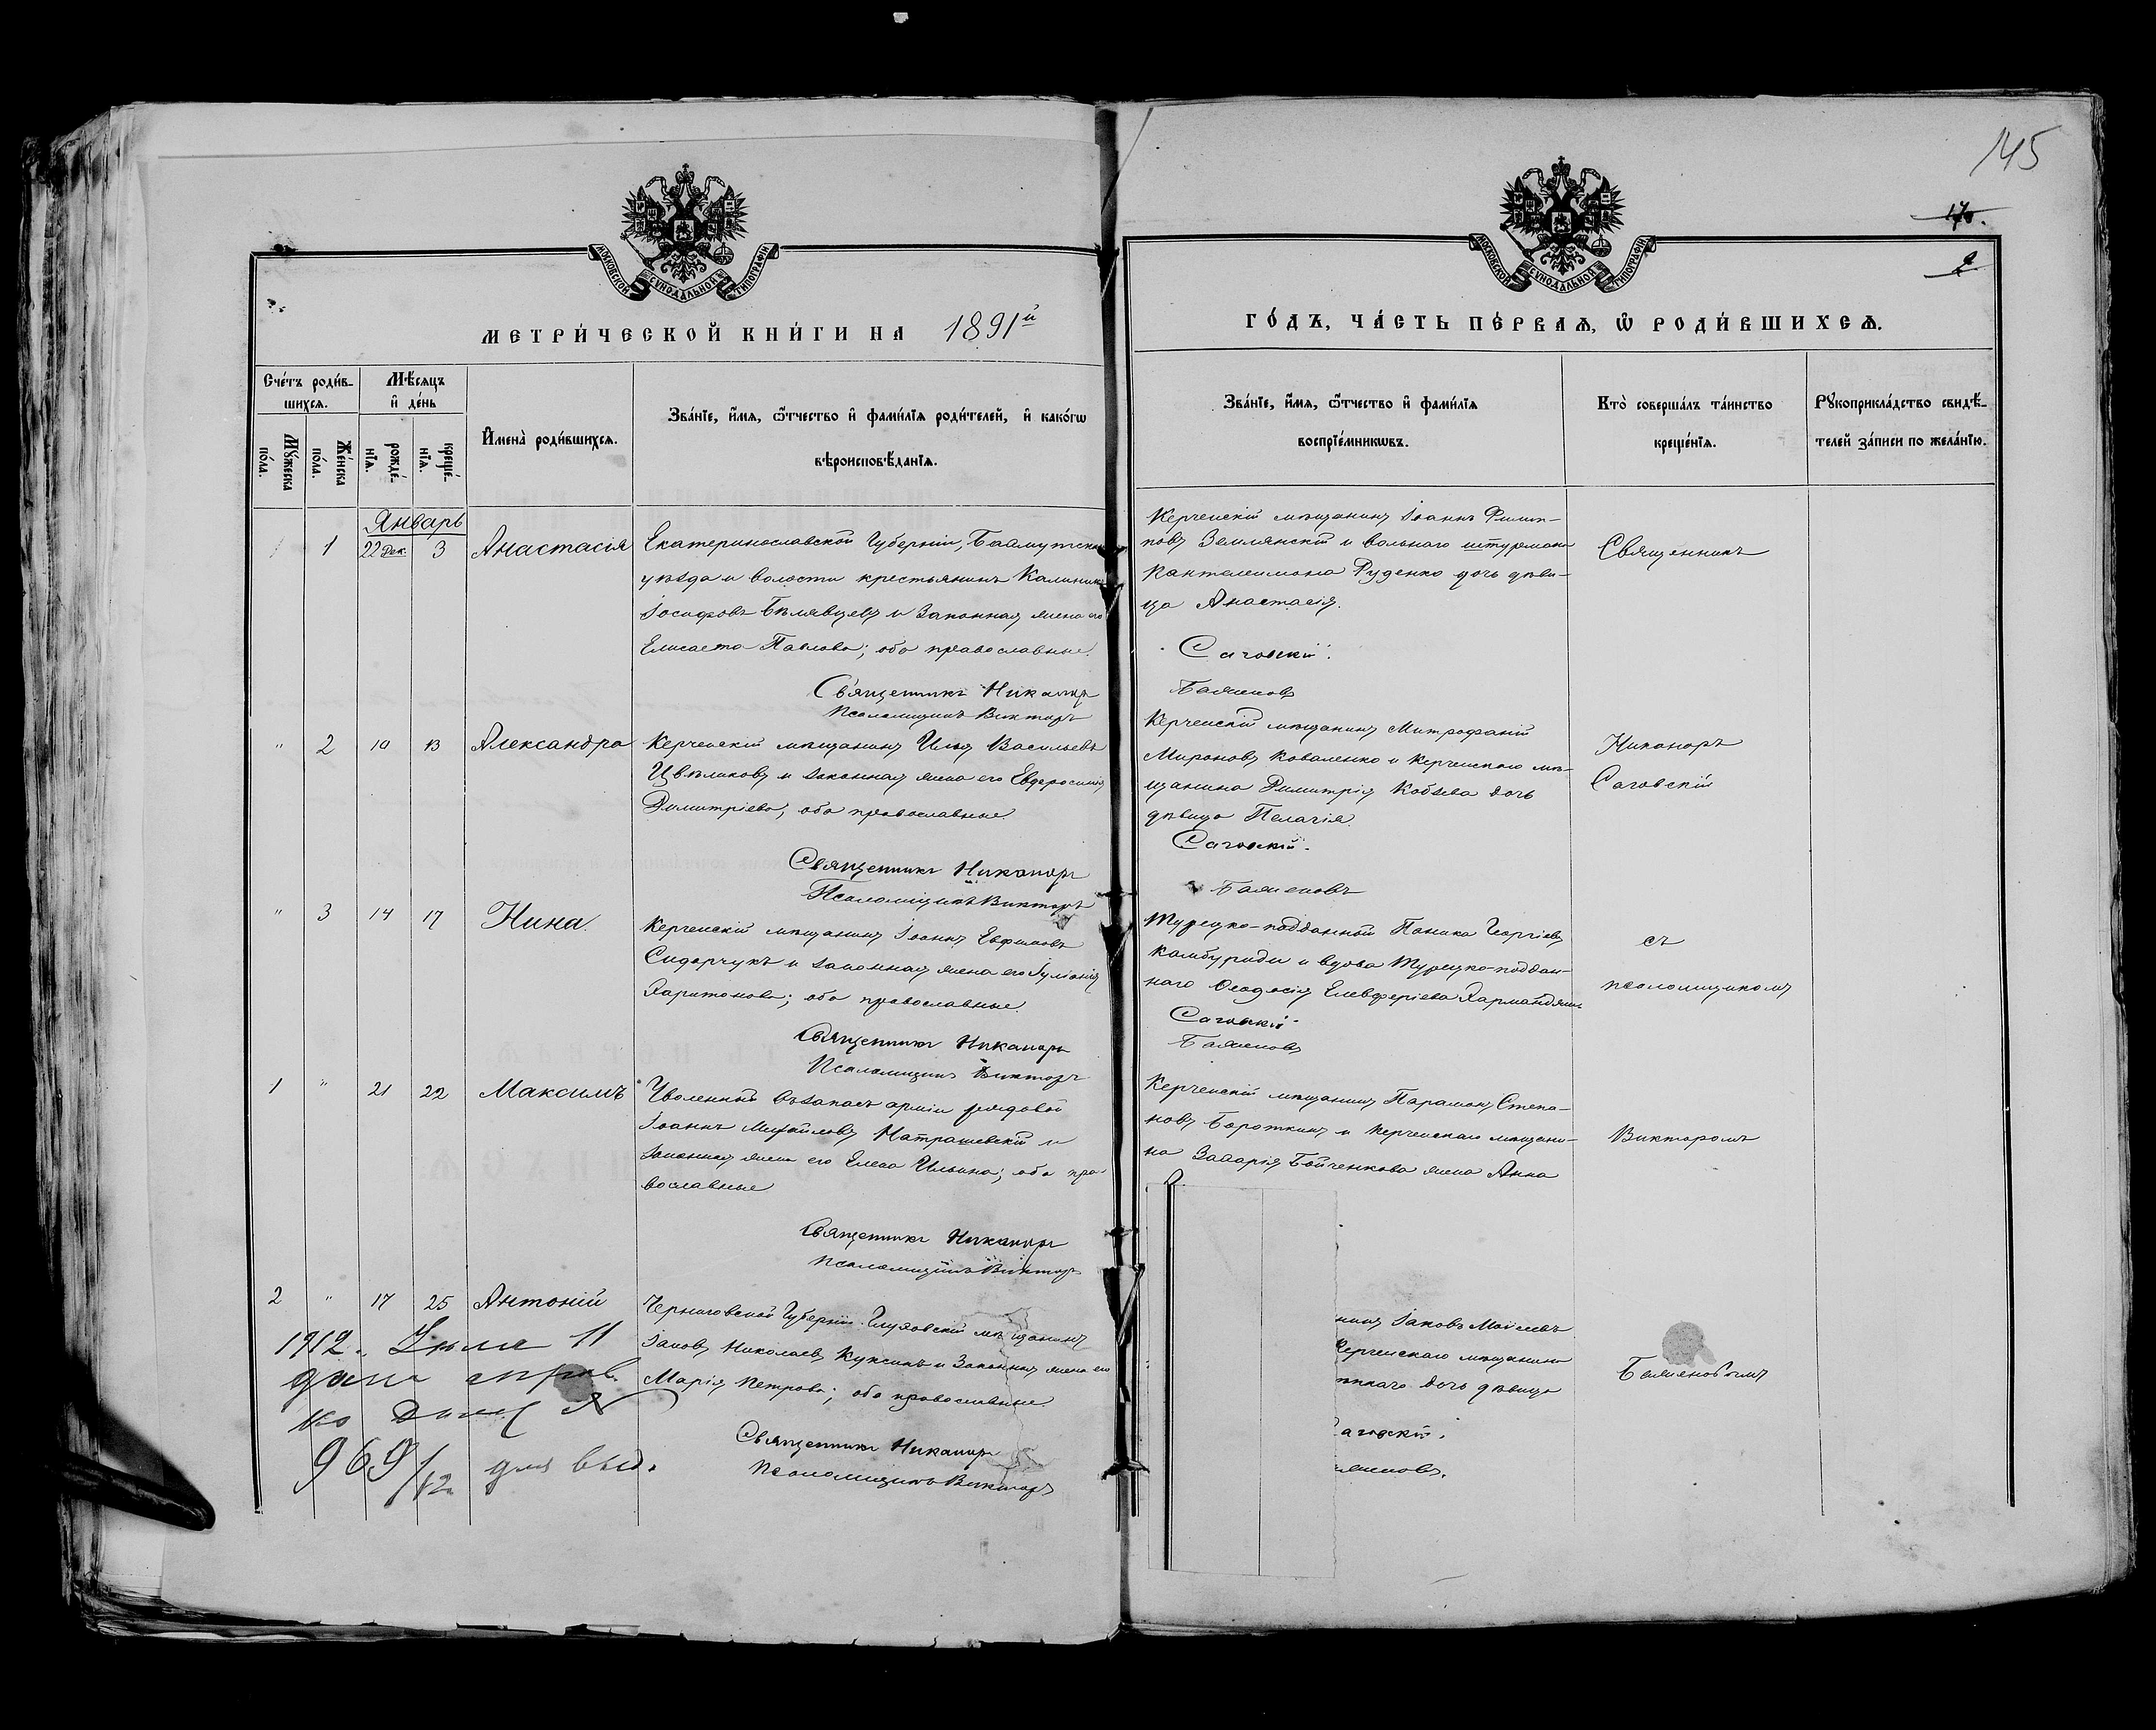 145
170.
2
МОСКОВСКОЙ СѴНОДАЛЬНОЙ ТИПОГРАФІИ
МЕТРИ́ЧЕСКОЙ КНИ́ГИ НА 1891й
Сче́тъ роди́в-
шихсѧ.
Мѣ́сѧцъ
и҆ де́нь
Мꙋ́жеска
по́ла.
Же́нска
по́ла.
рожде́-
нїѧ.
креще́-
нїѧ.
И҆мена̀ роди́вшихсѧ.
Зва́нїе, и҆́мѧ, ѻ҆́тчество и҆ фами́лїѧ роди́телей, и҆ како́гѡ
вѣроисповѣ́данїѧ.
Январь
1 22 Дек. 3 Анастасія
Екатеринославской Губерніи, Бахмутскаго
уѣзда и волости крестьянинъ Калиникъ
Іосифовъ Бѣлявцевъ и законная жена его
Елисавета Павлова; оба православные.
Священникъ Никаноръ
Псаломщикъ Викторъ
" 2 10 13 Александра
Керченскій мѣщанинъ Илья Васильевъ
Цвѣликовъ и законная жена его Евфросинія
Димитріева, оба православные.
Священникъ Никаноръ
Псаломщикъ Викторъ
" 3 14 17 Нина.
Керченскій мѣщанинъ Іоаннъ Евфимовъ
Сидорчукъ и законная жена его Іуліанія
Харитонова; оба православные.
Священникъ Никаноръ
Псаломщикъ Викторъ
1 " 21 22 Максимъ
Уволенный въ запасъ арміи рядовой
Іоаннъ Михайловъ Натрашевскій и
законная жена его Елена Ильина; оба пра-
вославные
Священникъ Никаноръ
Псаломщикъ Викторъ
2 " 17 25 Антоній
Черниговской Губерніи Глуховскій мѣщанинъ
Іаковъ Николаевъ Куксинъ и законная жена его
Марія Петрова; оба православные.
Священникъ Никаноръ
Псаломщикъ Викторъ
1912. 11
дана
969/12
МОСКОВСКОЙ СѴНОДАЛЬНОЙ ТИПОГРАФІИ
ГО́ДЪ, ЧА́СТЬ ПЕ́РВАѦ, Ѽ РОДИ́ВШИХСѦ.
Зва́нїе, и҆́мѧ, ѻ҆́тчество и҆ фами́лїѧ
воспрїе́мникѡвъ.
Кто̀ соверша́лъ та́инство
креще́нїѧ.
Рꙋкоприкла́дство свидѣ́-
телей за́писи по жела́нїю.
Керченскій мѣщанинъ Іоаннъ Филип-
повъ Землянскій и вольнаго штурмана
Пантелеимона Руденко дочь дѣви-
ца Анастасія.
Саговскій.
Баженовъ
Керченскій мѣщанинъ Митрофаній
Мироновъ Коваленко и Керченскаго мѣ-
щанина Димитрія Кобзева дочь
дѣвица Пелагія.
Саговскій.
Баженовъ
Турецко-подданной Панаіо Георгіевъ
Камбуриди и вдова Турецко-поддан-
наго Ѳеодосія Елевферіева
Саговскій
Баженовъ
Керченскій мѣщанинъ Парамонъ Степа-
новъ Бороткинъ и Керченскаго мѣщани-
на Захарія Бойченкова жена Анна
нинъ Іаковъ Моісеевъ
Керченскаго мѣщанина
дочь дѣвица
аговскій.
женовъ.
Священникъ
Никаноръ
Саговскій
съ
псаломщикомъ
Викторомъ
Баженовымъ